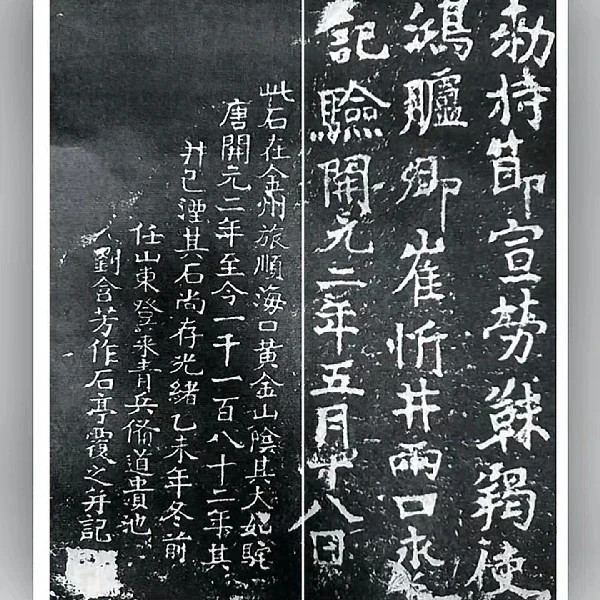 敕持節宣勞靺羯使
鴻臚卿崔忻井兩口永為
記驗開元二年五月十八日
此石在金州旅順海口黃金山陰其大如駝
唐開元二年至今一千一百八十二年其
井已湮其石尚存光緒乙未年冬前
任山東登萊青兵備道貴池
劉含芳作石亭覆之并記